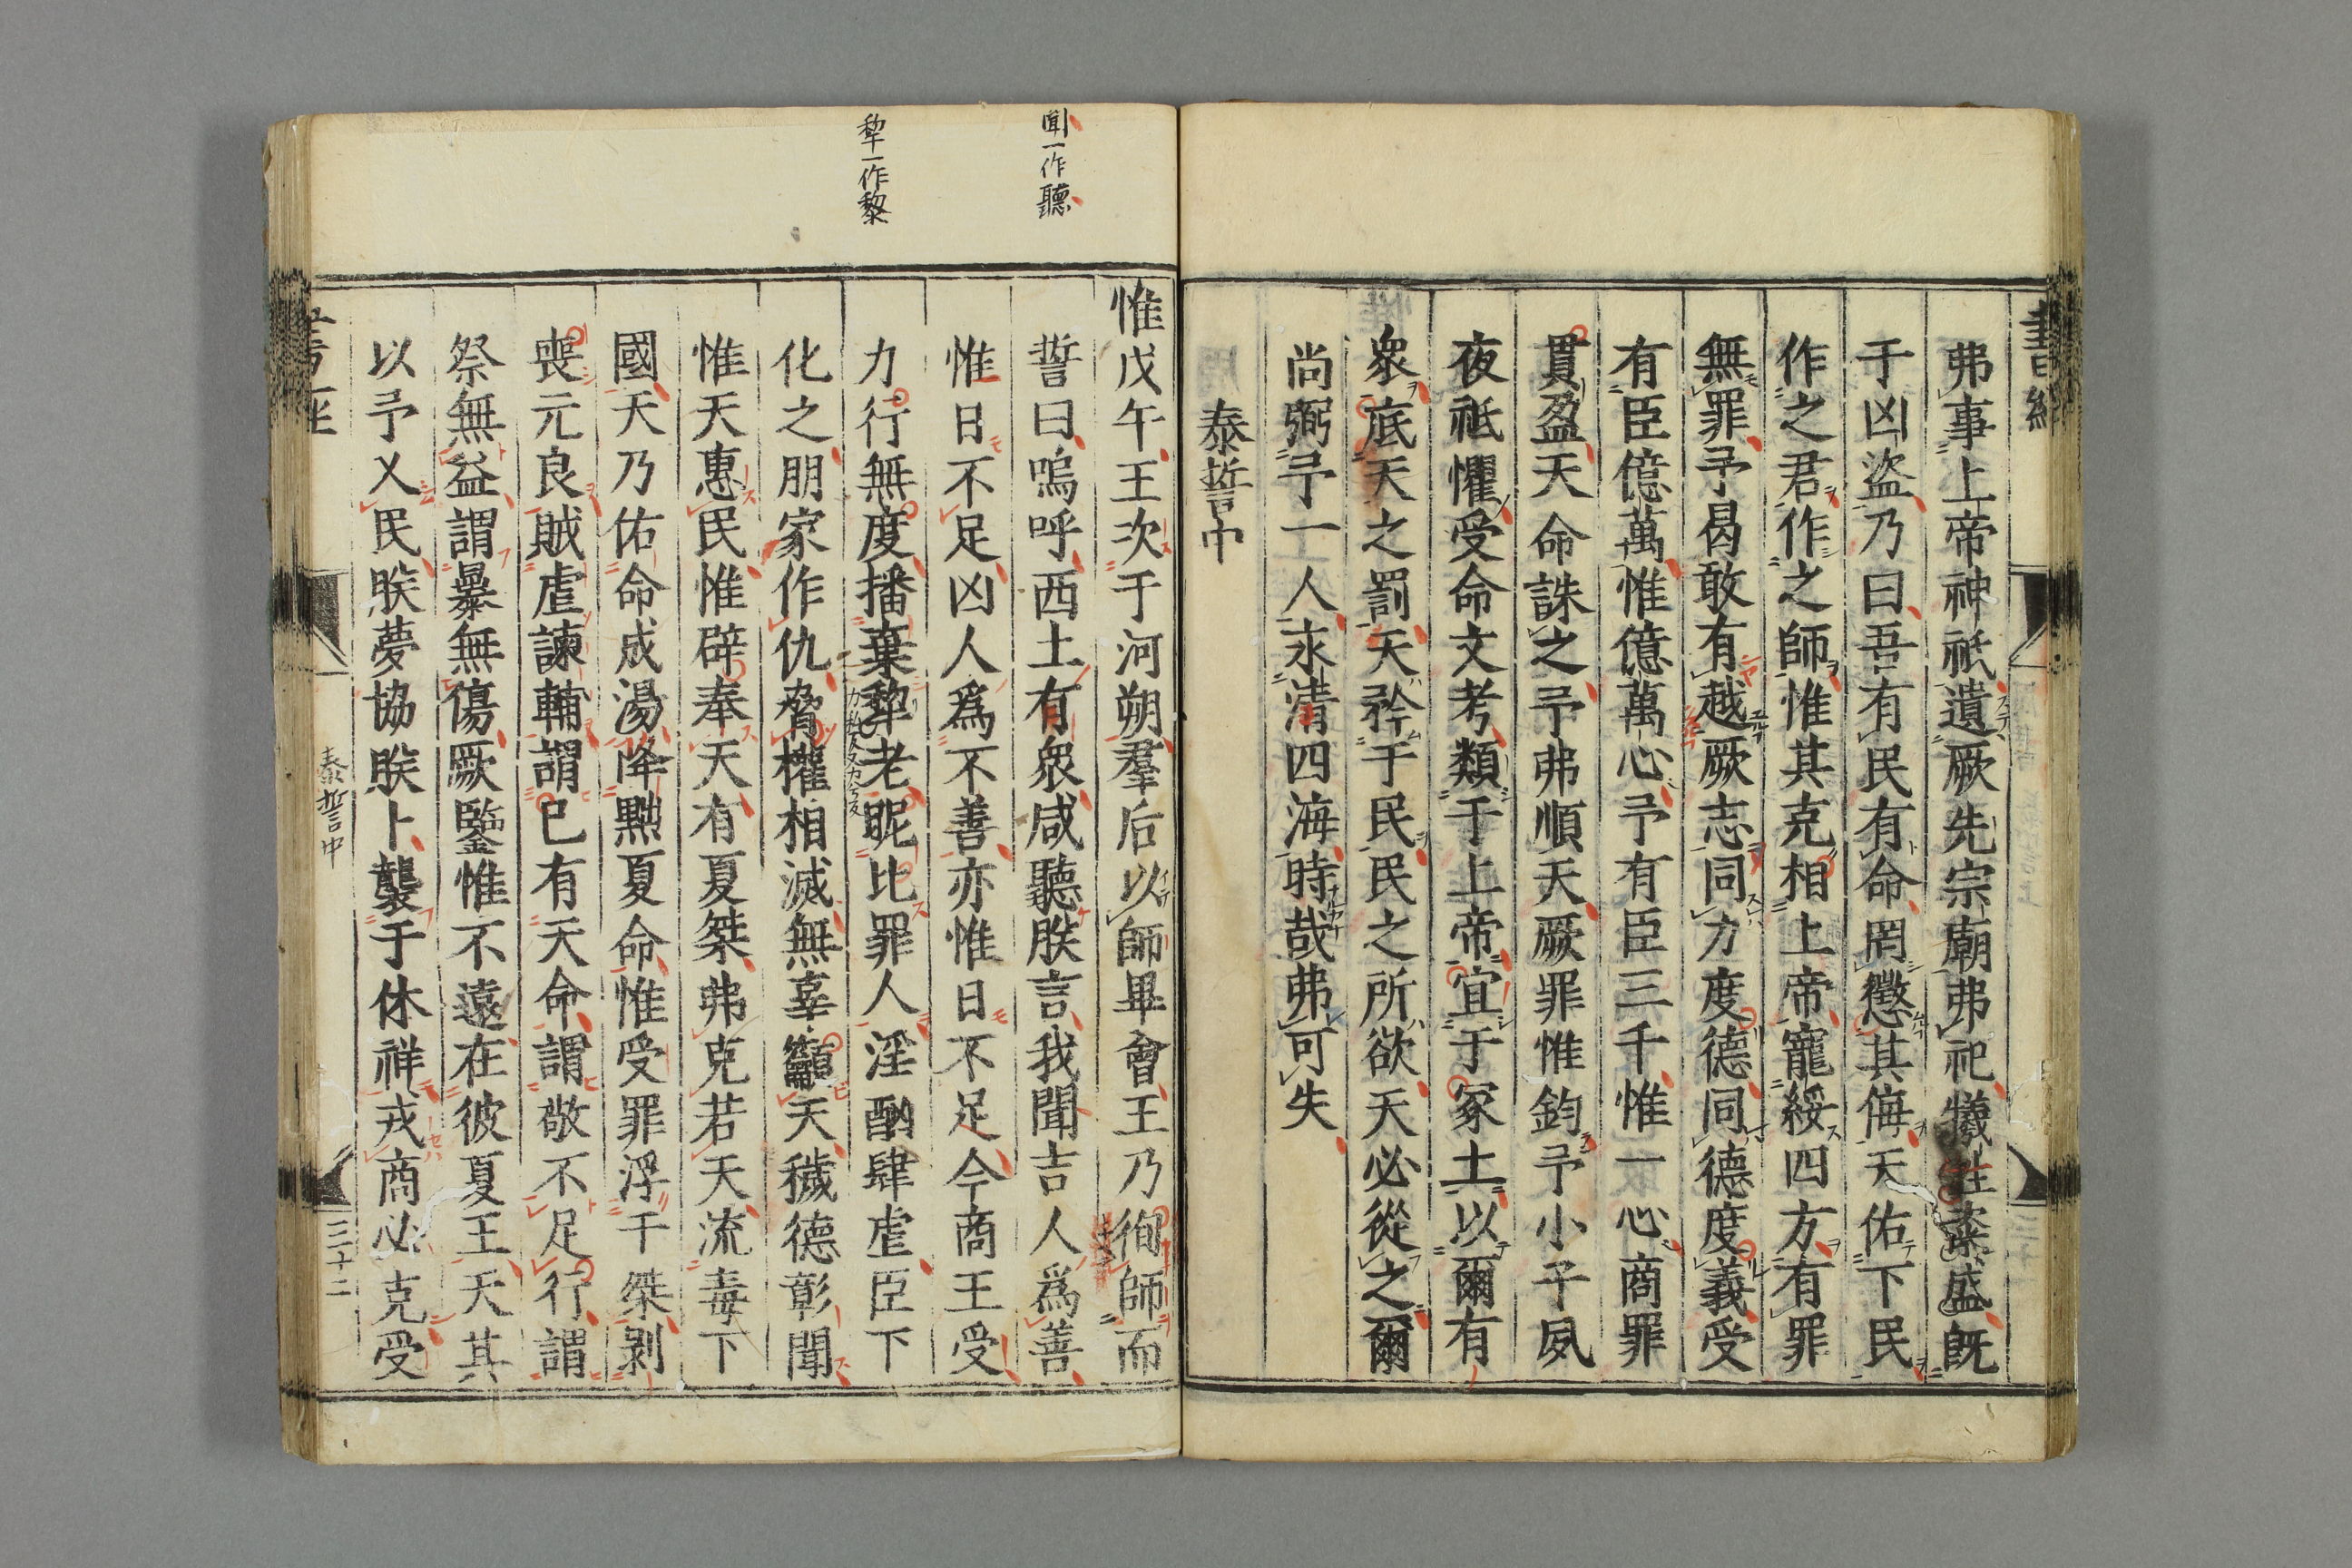 書經
弗事上帝神祗遺厥先宗廟弗祀犧牲粢盛既
于凶盜乃曰吾有民有命罔懲其侮天佑下民
作之君作之師惟其克相上帝寵綏四方有罪
無罪予曷敢有越厥志同力度德同德度義受
有臣億萬惟億萬心予有臣三千惟一心商罪
貫盈天命誅之予弗順天厥罪惟鈞予小子夙
夜祗懼受命文考類于上帝宜于冢土以爾有
衆底天之罰天矜于民民之所欲天必從之爾
尚弼予一人永清四海時哉弗可失
泰誓中
聞一作聽
犂一作黎
惟戊午王次于河朔羣后以師畢會王乃徇師而
誓曰嗚呼西土有衆咸聽朕言我聞吉人爲善
惟日不足凶人爲不善亦惟日不足今商王受
力行無度播棄犂老昵比罪人淫酗肆虐臣下
化之朋家作仇脅權相滅無辜籲天穢德彰聞
惟天惠民惟辟奉天有夏桀弗克若天流毒下
國天乃佑命成湯降黜夏命惟受罪浮于桀剝
喪元良賊虐諫輔謂己有天命謂敬不足行謂
祭無益謂暴無傷厥鑒惟不遠在彼夏王天其
以予乂民朕夢協朕卜襲于休祥戎商必克受
泰誓中
三十二